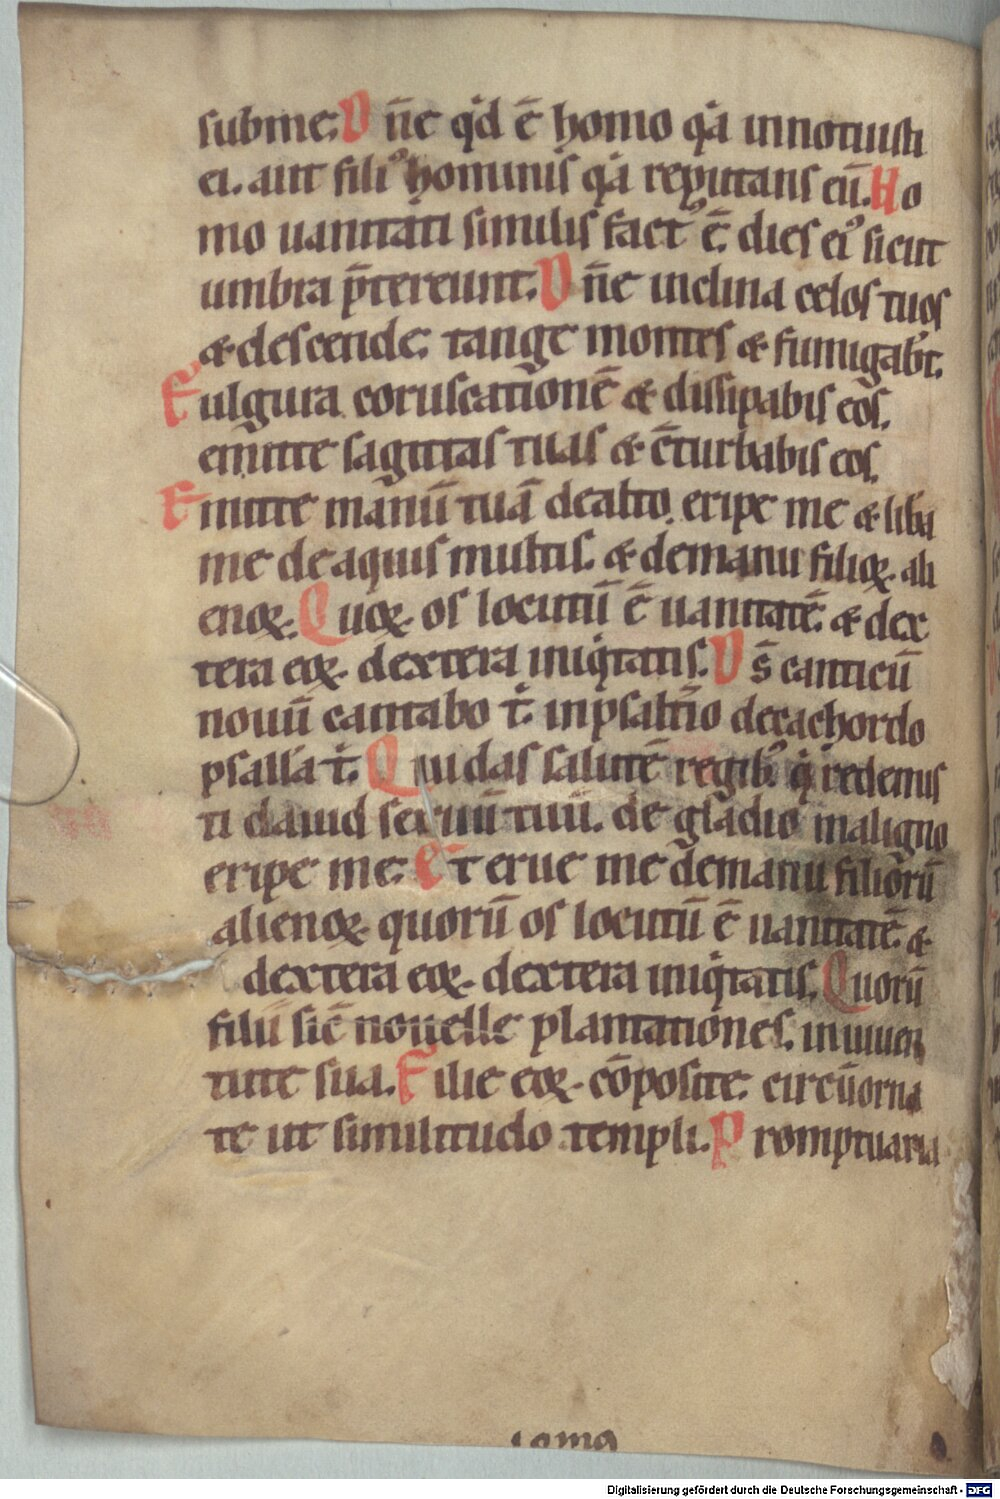 subme; D n̄e qͥd ē homo qͣa innotuisti
ei. aut filiꝰ hominis qͣa reputans eū. Ho
mo uanitati similis factꝰ ē. dies eiꝰ sicut
umbra p̄tereunt. D n̄e inclina celos tuos
& descende; tange montes & fumigab̄t.
Fulgura coruscationē & dissipabis eos.
emitte sagittas tuas & c̄turbabis eos.
Emitte manū tuā dealto. eripe me & lib̄a
me de aquis multis. & demanu filioꝝ. ali
enoꝝ. Quoꝝ. os locutū ē uanitatē. & dex
tera eoꝝ. dextera iniqͥtatis. D s̄ canticū
nouū cantabo tͥ. inpsalt̄io decachordo
psallā tͥ. Qui das salutē regibꝰ qͥ redemis
ti dauid seruū tuū. de gladio maligno
eripe me; Et erue me demanu filiorū
alienoꝝ. quorū os locutū ē uanitatē. &
dextera eoꝝ. dextera iniqͥtatis. Quorū
filii sic̄ nouelle plantationes. in iuuen
tute sua. Filie eoꝝ. cōposite. circūorna
te ut similitudo templi. Promptuaria
Digitalisierung gefördert durch die Deutsche Forschungsgemeinschaft - DFG